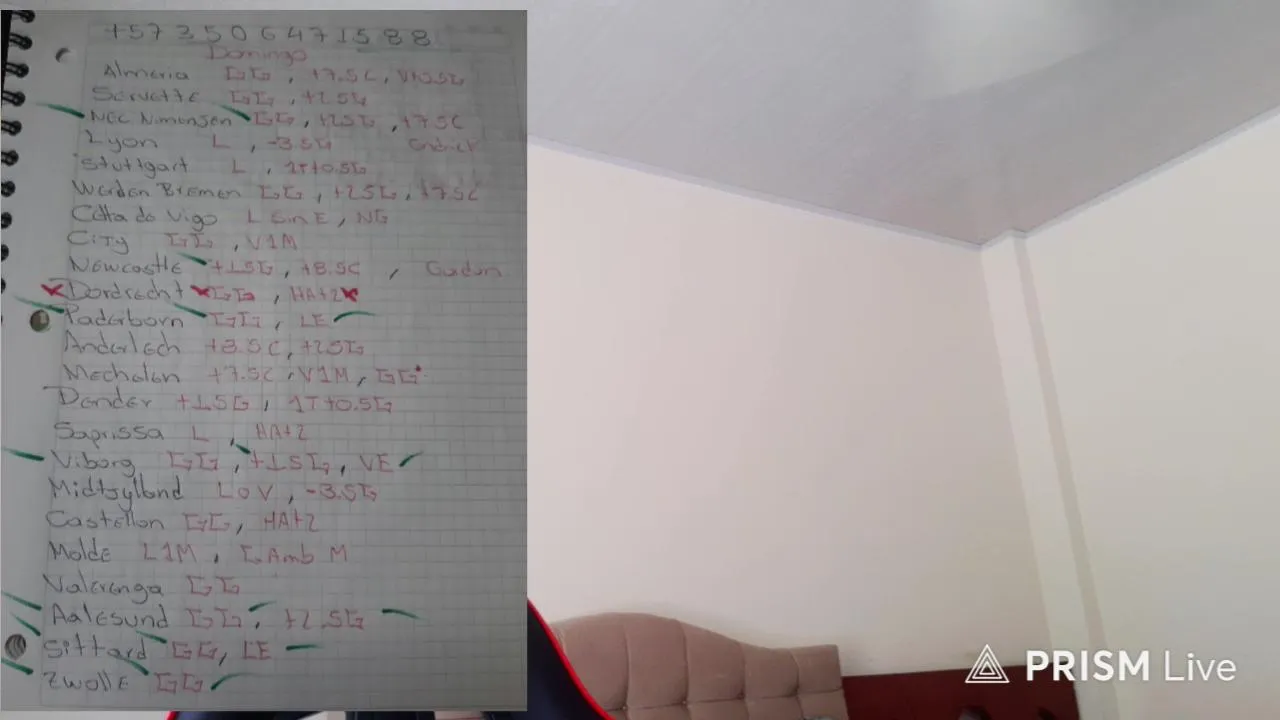 +57 350 6471588
Domingo
Almeria GG, +7.5C, VA0.5G
Servette GG, +2.5G
NEC Nimengen GG, +2.5G, +7.5C
Lyon L, -3.5G
Stuttgart L, 1T+0.5G
Werden Bremen GG, +2.5G, +7.5C
Celta de Vigo L Sin E, NG
City GG, V1M
Newcastle +1.5G, +8.5C,
Dordrecht GG, HA+2
Paderborn GG, LE
Anderlech +8.5C, +2.5G
Mechelen +7.5C, V1M, GG
Dender +1.5G, 1T+0.5G
Saprissa L, HA+2
Viborg GG, +1.5G, VE
Midtjylland LoV, -3.5G
Castellon GG, HA+2
Molde L1M, GAmb M
Valerenga GG
Aalesund GG, +2.5G
Sittard GG, LE
Zwolle GG
PRISM Live